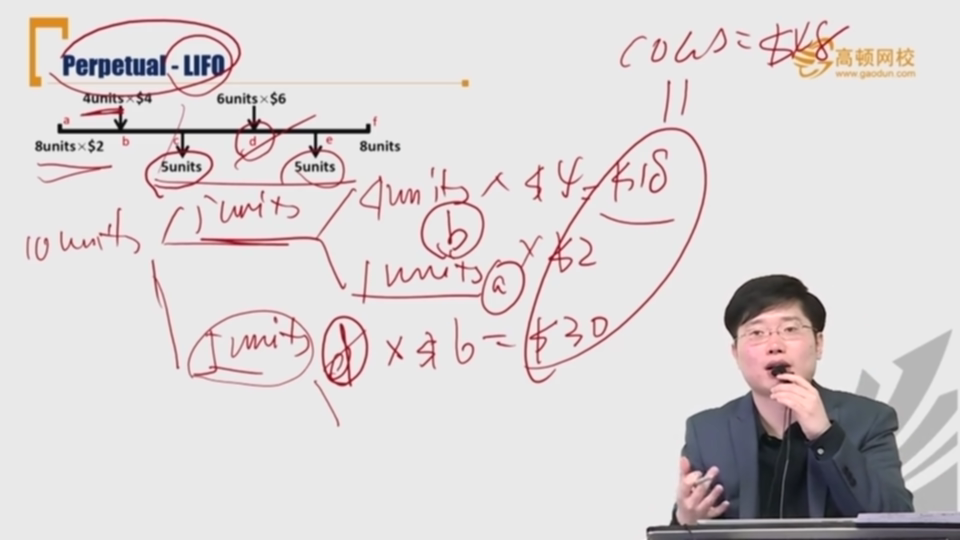 Perpetual - LIFO
COGS = $48
高顿网校
www.gaodun.com
4units×$4 6units×$6
a b c d e f
8units×$2 5units 5units 8units
10 units
5 units
4 units × $4 = $18
b
1 units a × $2
5 units d × $6 = $30